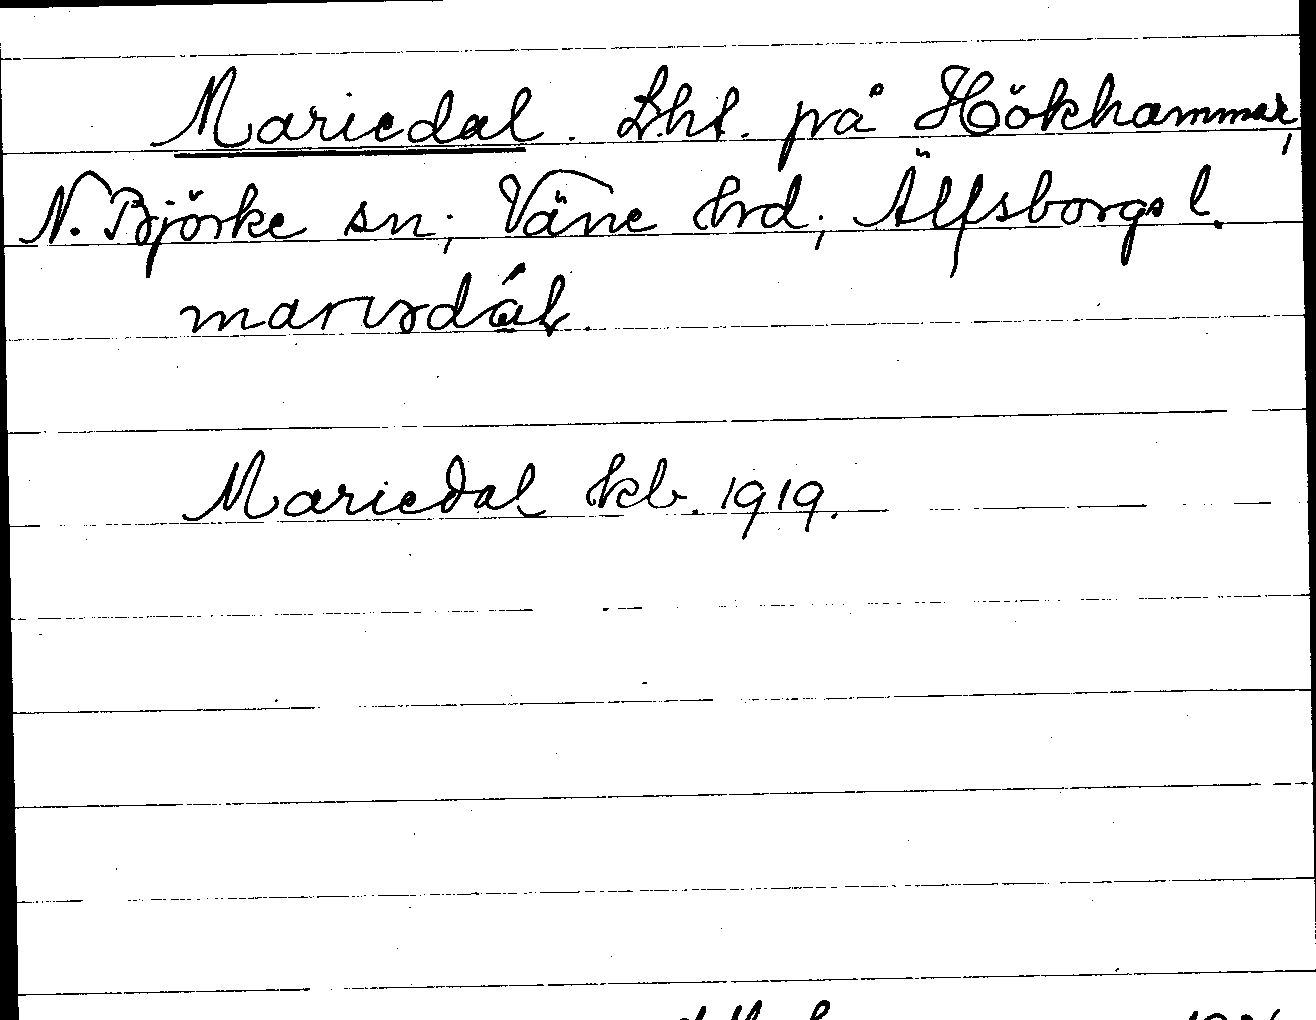 Mariedal. Lht. på Hökhammar,
N. Björke sn; Väne hrd; Älfsborgs l.
Mariedal kb. 1919.